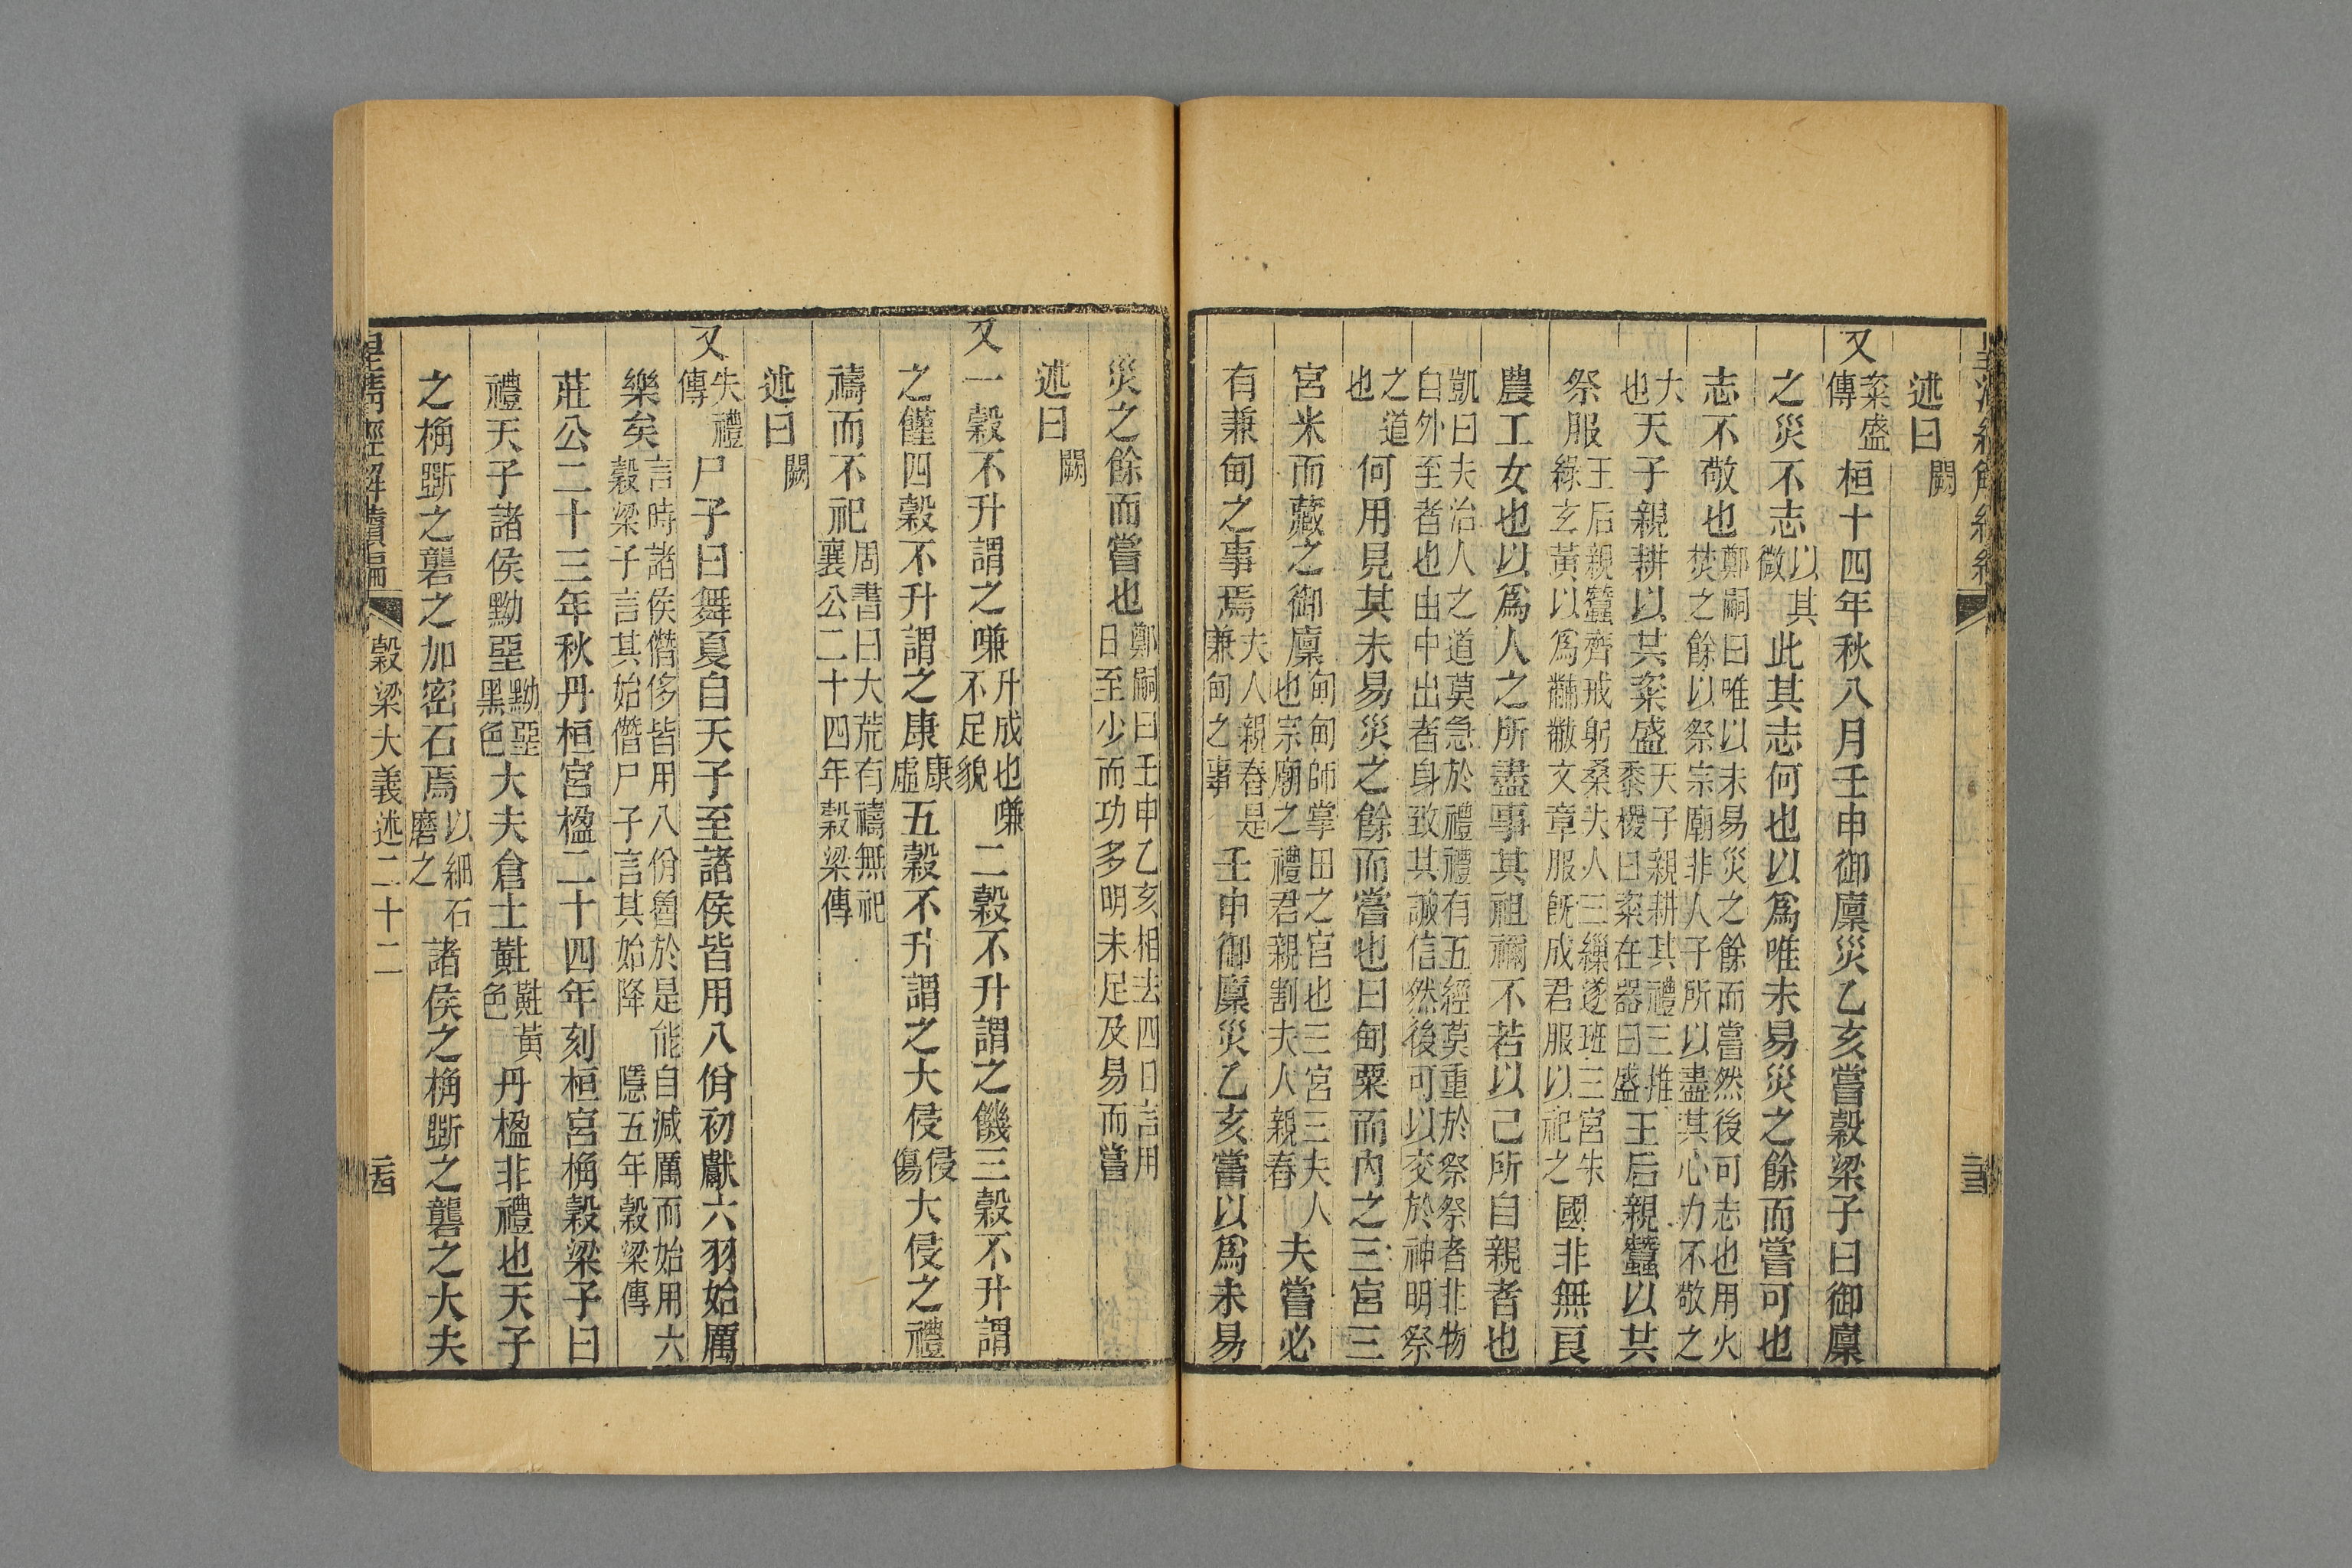 述曰闕
又粢盛傳桓十四年秋八月壬申御廩災乙亥嘗穀梁子曰御廩
之災不志以其微此其志何也以爲唯未易災之餘而嘗可也
志不敬也鄭嗣曰唯以未易災之餘而嘗然後可志也用火焚之餘以祭宗廟非人子所以盡其心力不敬之
大也天子親耕以共粢盛天子親耕其禮三推黍稷曰粢在器曰盛王后親蠶以共
祭服王后親蠶齊戒躬桑夫人三繅遂班三宮朱綠玄黃以爲黼黻文章服旣成君服以祀之國非無良
農工女也以爲人之所盡事其祖禰不若以己所自親者也
凱曰夫治人之道莫急於禮禮有五經莫重於祭祭者非物自外至者也由中出者身致其誠信然後可以交於神明祭
之道也何用見其未易災之餘而嘗也曰甸粟而內之三宮三
宮米而藏之御廩甸甸師掌田之官也三宮三夫人也宗廟之禮君親割夫人親舂夫嘗必
有兼甸之事焉夫人親舂是兼甸之事壬申御廩災乙亥嘗以爲未易
災之餘而嘗也鄭嗣曰壬申乙亥相去四日言用日至少而功多明未足及易而嘗
述曰闕
又一穀不升謂之嗛升成也嗛不足貌二穀不升謂之饑三穀不升謂
之饉四穀不升謂之康康虛五穀不升謂之大侵侵傷大侵之禮
禱而不祀周書曰大荒有禱無祀襄公二十四年穀梁傳
述曰闕
又失禮傳尸子曰舞夏自天子至諸侯皆用八佾初獻六羽始厲
樂矣言時諸侯僭侈皆用八佾魯於是能自減厲而始用六穀梁子言其始僭尸子言其始降隱五年穀梁傳
莊公二十三年秋丹桓宮楹二十四年刻桓宮桷穀梁子曰
禮天子諸侯黝堊黝堊黑色大夫倉士黈黈黃色丹楹非禮也天子
之桷斲之礱之加密石焉以細石磨之諸侯之桷斲之礱之大夫
皇清經解續編 穀梁大義述二十二